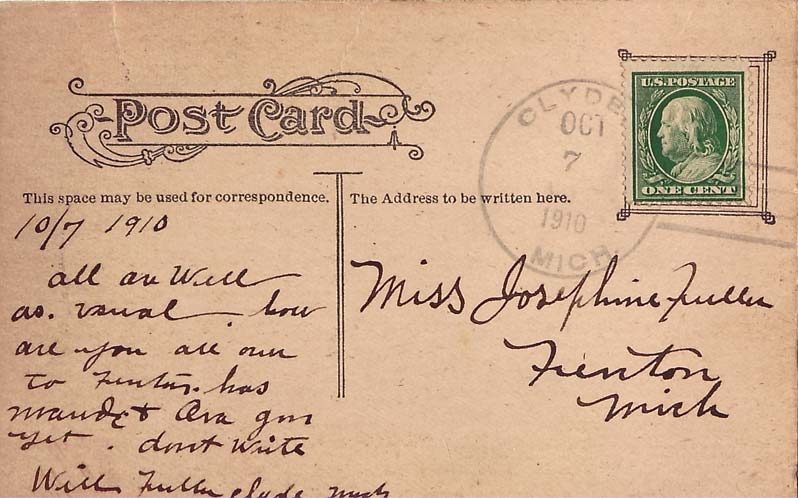 Post Card
U.S. POSTAGE
ONE CENT
CLYDE
OCT
7
1910
MICH.
This space may be used for correspondence.
The Address to be written here.
10/7 1910
all are Well
as usual how
are you all over
to Fenton. has
Maude & Ora gon
yet. dont Write
Will Fuller Clyde Mich
Miss Josephine Fuller
Fenton
Mich